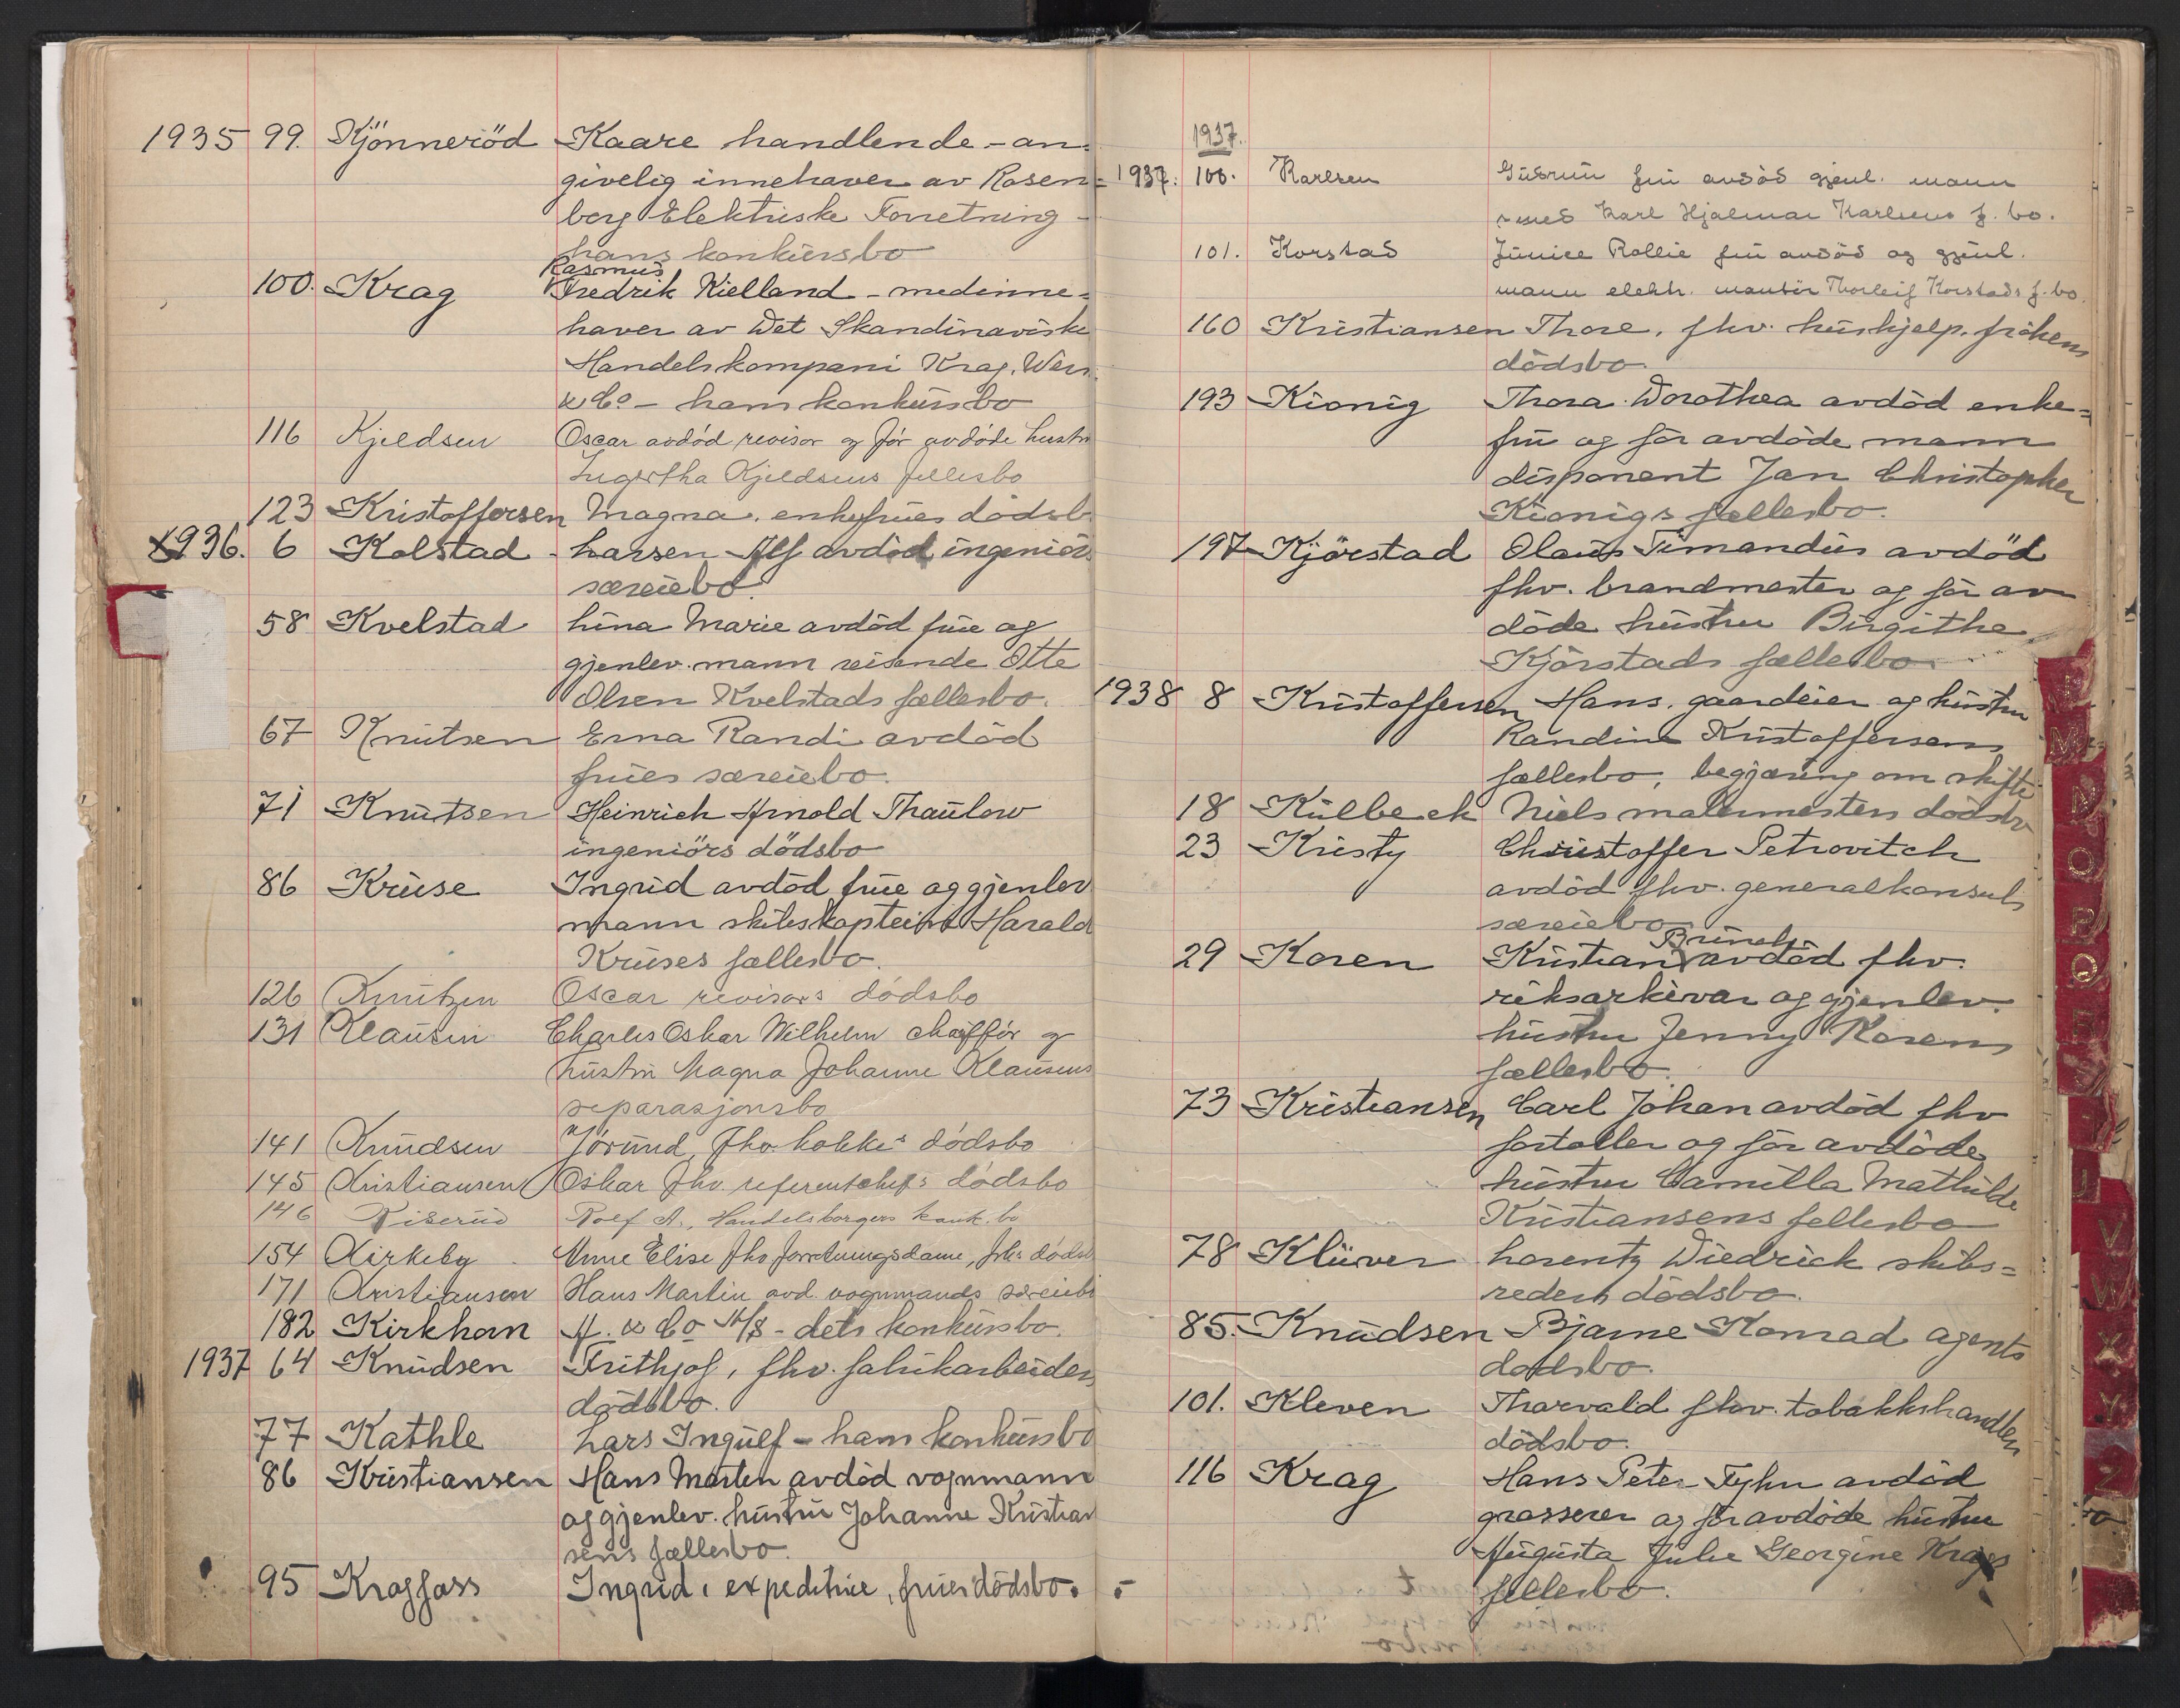 1935 99. Kjönneröd Kaare handlende - an-
givelig innehaver av Rosen-
berg Elektriske Forretning -
hans konkursbo
Rasmus
100. Krag Fredrik Kielland - medinne-
haver av Det Skandinaviske
Handelskompani Krag,
& Co - hans konkursbo
116 Kjeldsen Oscar avdöd revisor og för avdöde hustru
Kjeldsens fellesbo
123 Kristoffersen Magna, enkefrues dödsb
1936. 6 Kolstad Larsen Alf avdöd ingeniörs
særeiebo.
58 Kvelstad Lina Marie avdöd frue og
gjenlev. mann reisende Otte
Olsen Kvelstads fællesbo.
67 Knutsen Erna Randi avdöd
frues særeiebo.
71 Knutsen Heinrich Arnold Thaulow
ingeniörs dödsbo
86 Kruse Ingrid avdöd frue og gjenlev
mann skibskaptein Harald
Kruses fællesbo.
126 Knutzen Oscar revisors dödsbo
131 Klausen Charles Oskar Wilhelm chafför og
hustru Magna Johanne Klausens
separasjonsbo
141 Knudsen Jörund, fhv. kokke's dödsbo
145 Kristiansen Oskar fhv. referentchefs dödsbo
146 Rolf A., Handelsborgers konk. bo
154 Kirkeby Anne Elise fhv forretningsdame, frk's dödsb
171 Kristiansen Hans Martin avd. vognmands særeiebo
182 Kirkhorn A. & Co A/S - dets konkursbo.
1937 64 Knudsen Frithjof, fhv. fabrikarbeiders
dödsbo.
77 Kathle Lars Ingulf - hans konkursbo
86 Kristiansen Hans Morten avdöd vognmann
og gjenlev. hustru Johanne Kristian
sens fællesbo.
95 Kragfoss Ingrid, expeditrice, frues dödsbo.
1937.
1937. 100. Karlsen Gudrun fru avdöd gjenl. mann
Karl Hjalmar Karlsens f. bo.
101. Korstad Junice Rollie fru avdöd og gjenl.
mann elektr. montör Thorleif Korstads f. bo.
160 Kristiansen Thore, fhv. hushjelp, frökens
dödsbo.
193 Kionig Thora Dorothea avdöd enke-
fru og för avdöde mann
disponent Jan Christopher
Kionigs fællesbo.
197 Kjörstad Olaus Timandus avdöd
fhv. brandmester og för av
döde hustru Birgithe
Kjörstads fællesbo
1938 8 Kristoffersen Hans, gaardeier og hustru
Randine Kristoffersens
fællesbo, begjæring om skifte
18 Külbeck Niels malermesters dödsbo
23 Kristy Christoffer Petrovitch
avdöd fhv. generalkonsuls
særeiebo
Brinch
29 Koren Kristian avdöd fhv.
riksarkivar og gjenlev.
hustru Jenny Korens
fællesbo.
73 Kristiansen Carl Johan avdöd fhv
fortoller og för avdöde
hustru Camilla Mathilde
Kristiansens fellesbo
78 Klüver Lorentz Diedrick skibs-
reders dödsbo.
85. Knudsen Bjarne Konrad agents
dödsbo.
101. Kleven Thorvald fhv. tobakkshandlers
dödsbo.
116 Krag Hans Peter Fyhn avdöd
grosserer og för avdöde hustru
Augusta Julie Georgine Krags
fellesbo.
M
N
O
P
Q
R
S
T
U
V
W
X
Y
Z